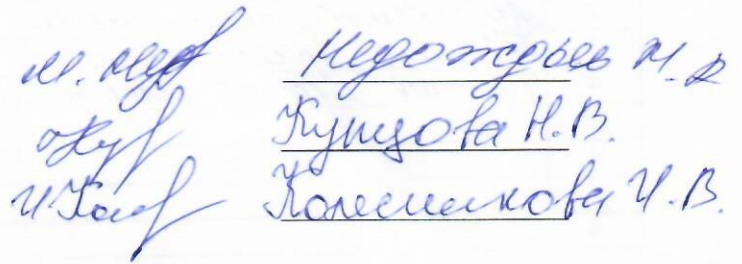 Недождьев М.В
Купцова Н.В.
Колесникова И.В.